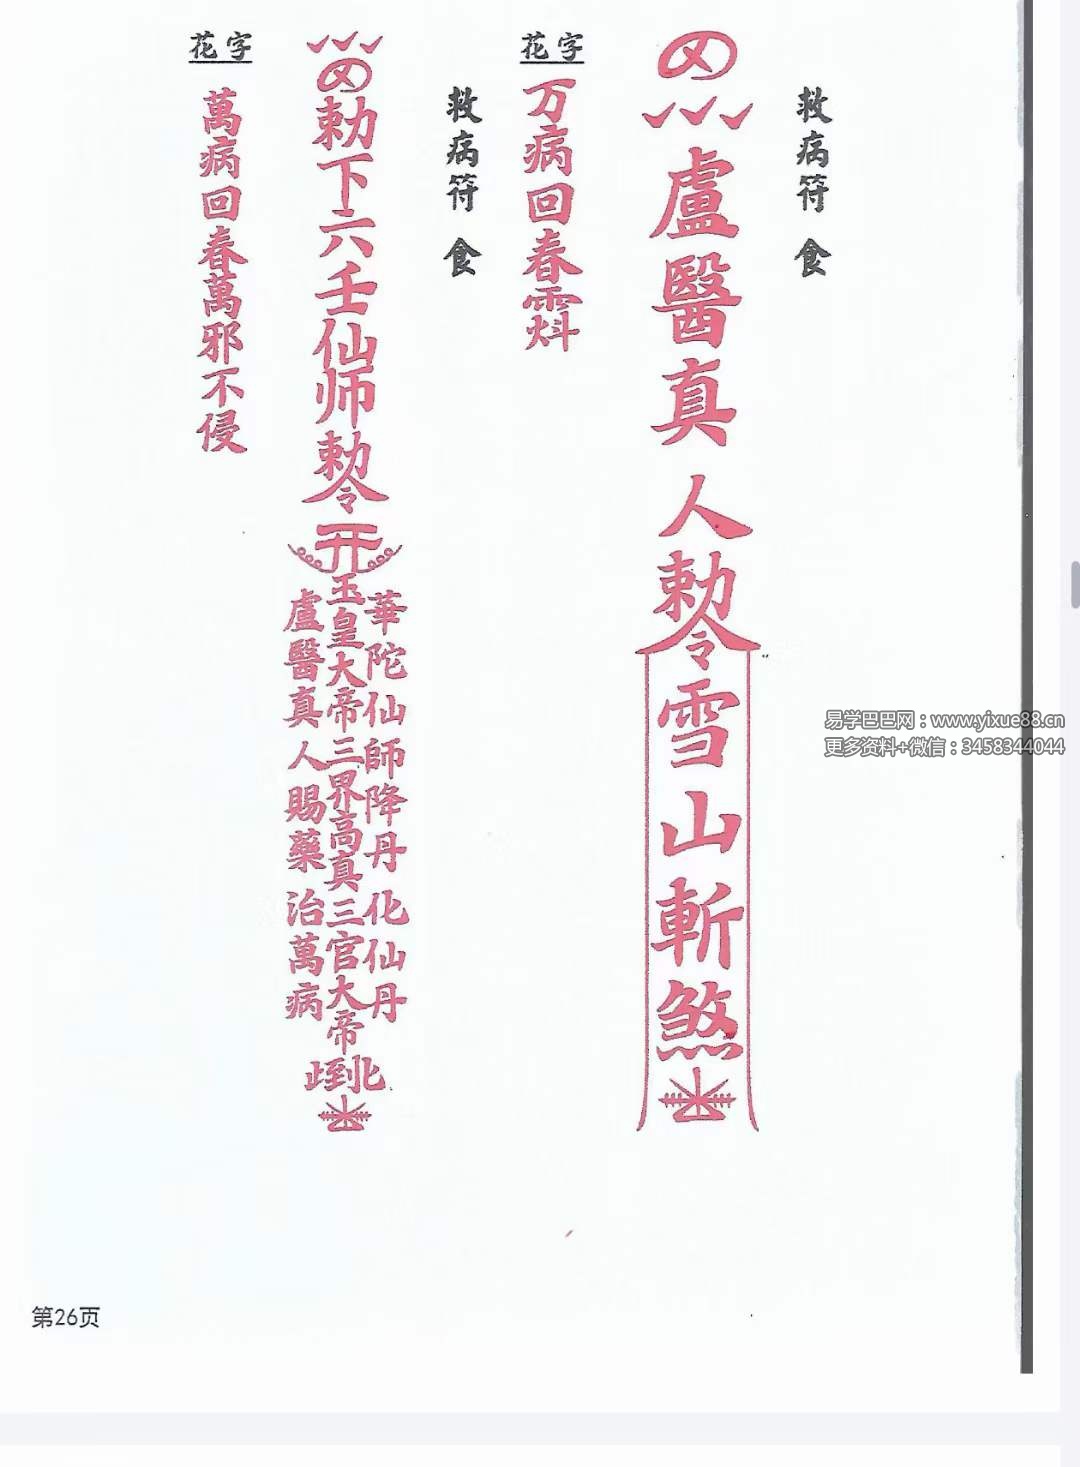 救病符 食
盧醫真人勅令雪山斬煞
花字
万病回春
救病符 食
勅下六壬仙师勅令开
華陀仙師降丹化仙丹
玉皇大帝三界高真三官大帝到
盧醫真人賜藥治萬病
花字
萬病回春萬邪不侵
易学巴巴网：www.yixue88.cn
更多资料+微信：3458344044
第26页